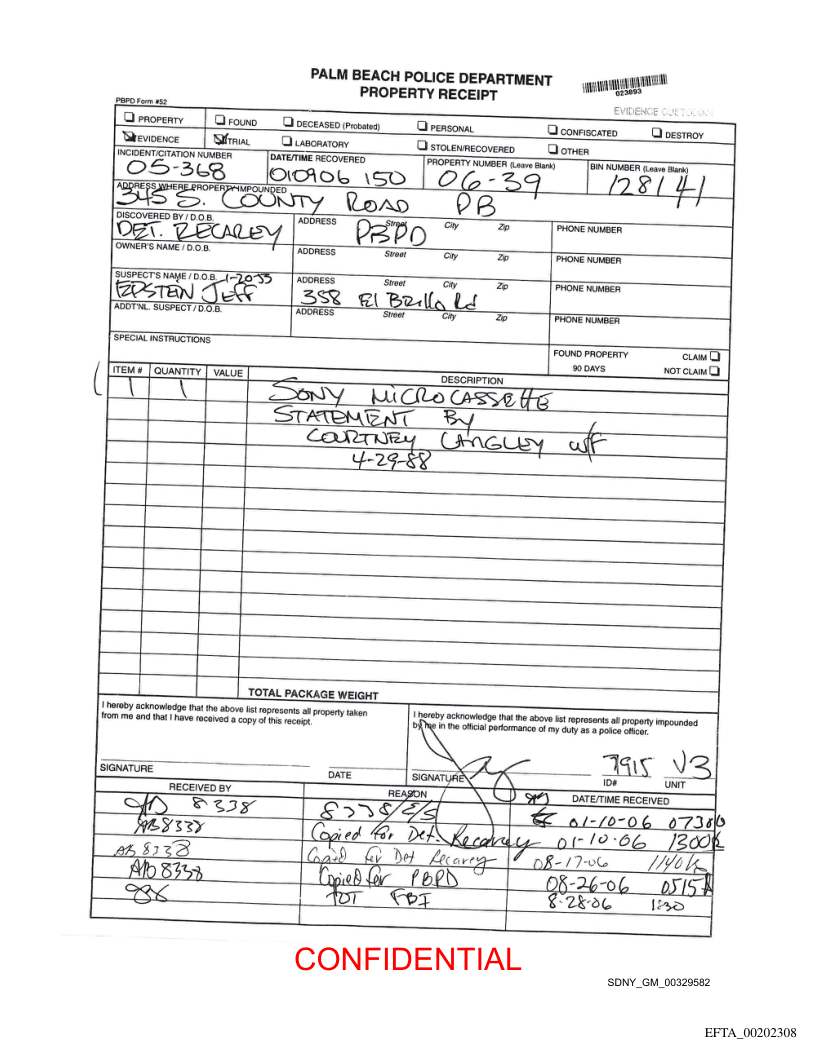 PALM BEACH POLICE DEPARTMENT
PROPERTY RECEIPT
023893
PBPD Form #52
EVIDENCE CUSTODIAN
PROPERTY FOUND DECEASED (Probated) PERSONAL CONFISCATED DESTROY
EVIDENCE TRIAL LABORATORY STOLEN/RECOVERED OTHER
INCIDENT/CITATION NUMBER DATE/TIME RECOVERED PROPERTY NUMBER (Leave Blank) BIN NUMBER (Leave Blank)
05-368 010906 150 06-39 128141
ADDRESS WHERE PROPERTY IMPOUNDED
345 S. COUNTY ROAD PB
DISCOVERED BY / D.O.B. ADDRESS Street City Zip PHONE NUMBER
DET. RECAREY PBPD
OWNER'S NAME / D.O.B. ADDRESS Street City Zip PHONE NUMBER
SUSPECT'S NAME / D.O.B. 1-20-53 ADDRESS Street City Zip PHONE NUMBER
EPSTEIN JEFF 358 El Brillo Rd
ADDT'NL. SUSPECT / D.O.B. ADDRESS Street City Zip PHONE NUMBER
SPECIAL INSTRUCTIONS
FOUND PROPERTY CLAIM
90 DAYS NOT CLAIM
ITEM # QUANTITY VALUE DESCRIPTION
1 1 SONY MICROCASSETTE
STATEMENT By
COURTNEY LANGLEY w/F
4-29-88
TOTAL PACKAGE WEIGHT
I hereby acknowledge that the above list represents all property taken
from me and that I have received a copy of this receipt.
I hereby acknowledge that the above list represents all property impounded
by me in the official performance of my duty as a police officer.
7915 V3
SIGNATURE DATE SIGNATURE ID# UNIT
RECEIVED BY REASON DATE/TIME RECEIVED
8338 01-10-06
AB 8338 Copied for Det. Recarey 01-10-06 1300
AB 8338 Copied for Det Recarey 08-17-06 1140
AB 8338 Copied for PBPD 08-26-06 0515
TOT FBI 8-28-06 1:30
CONFIDENTIAL
SDNY_GM_00329582
EFTA_00202308